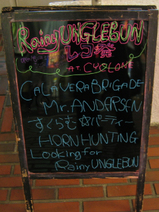 Rainy UNGLEBUN
at CYCLONE
CALAVERA BRIGADE
Mr. ANDARSEN
HORN HUNTING
Looking for
Rainy UNGLEBUN